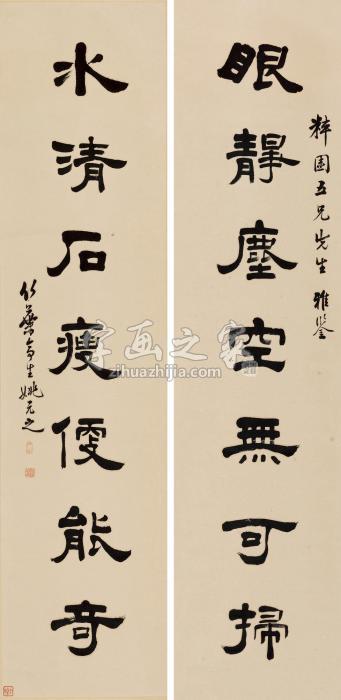 粹園五兄先生雅鑒
眼靜塵空無可掃
水清石瘦便能奇
竹葉亭生姚元之
字画之家
zihuazhijia.com